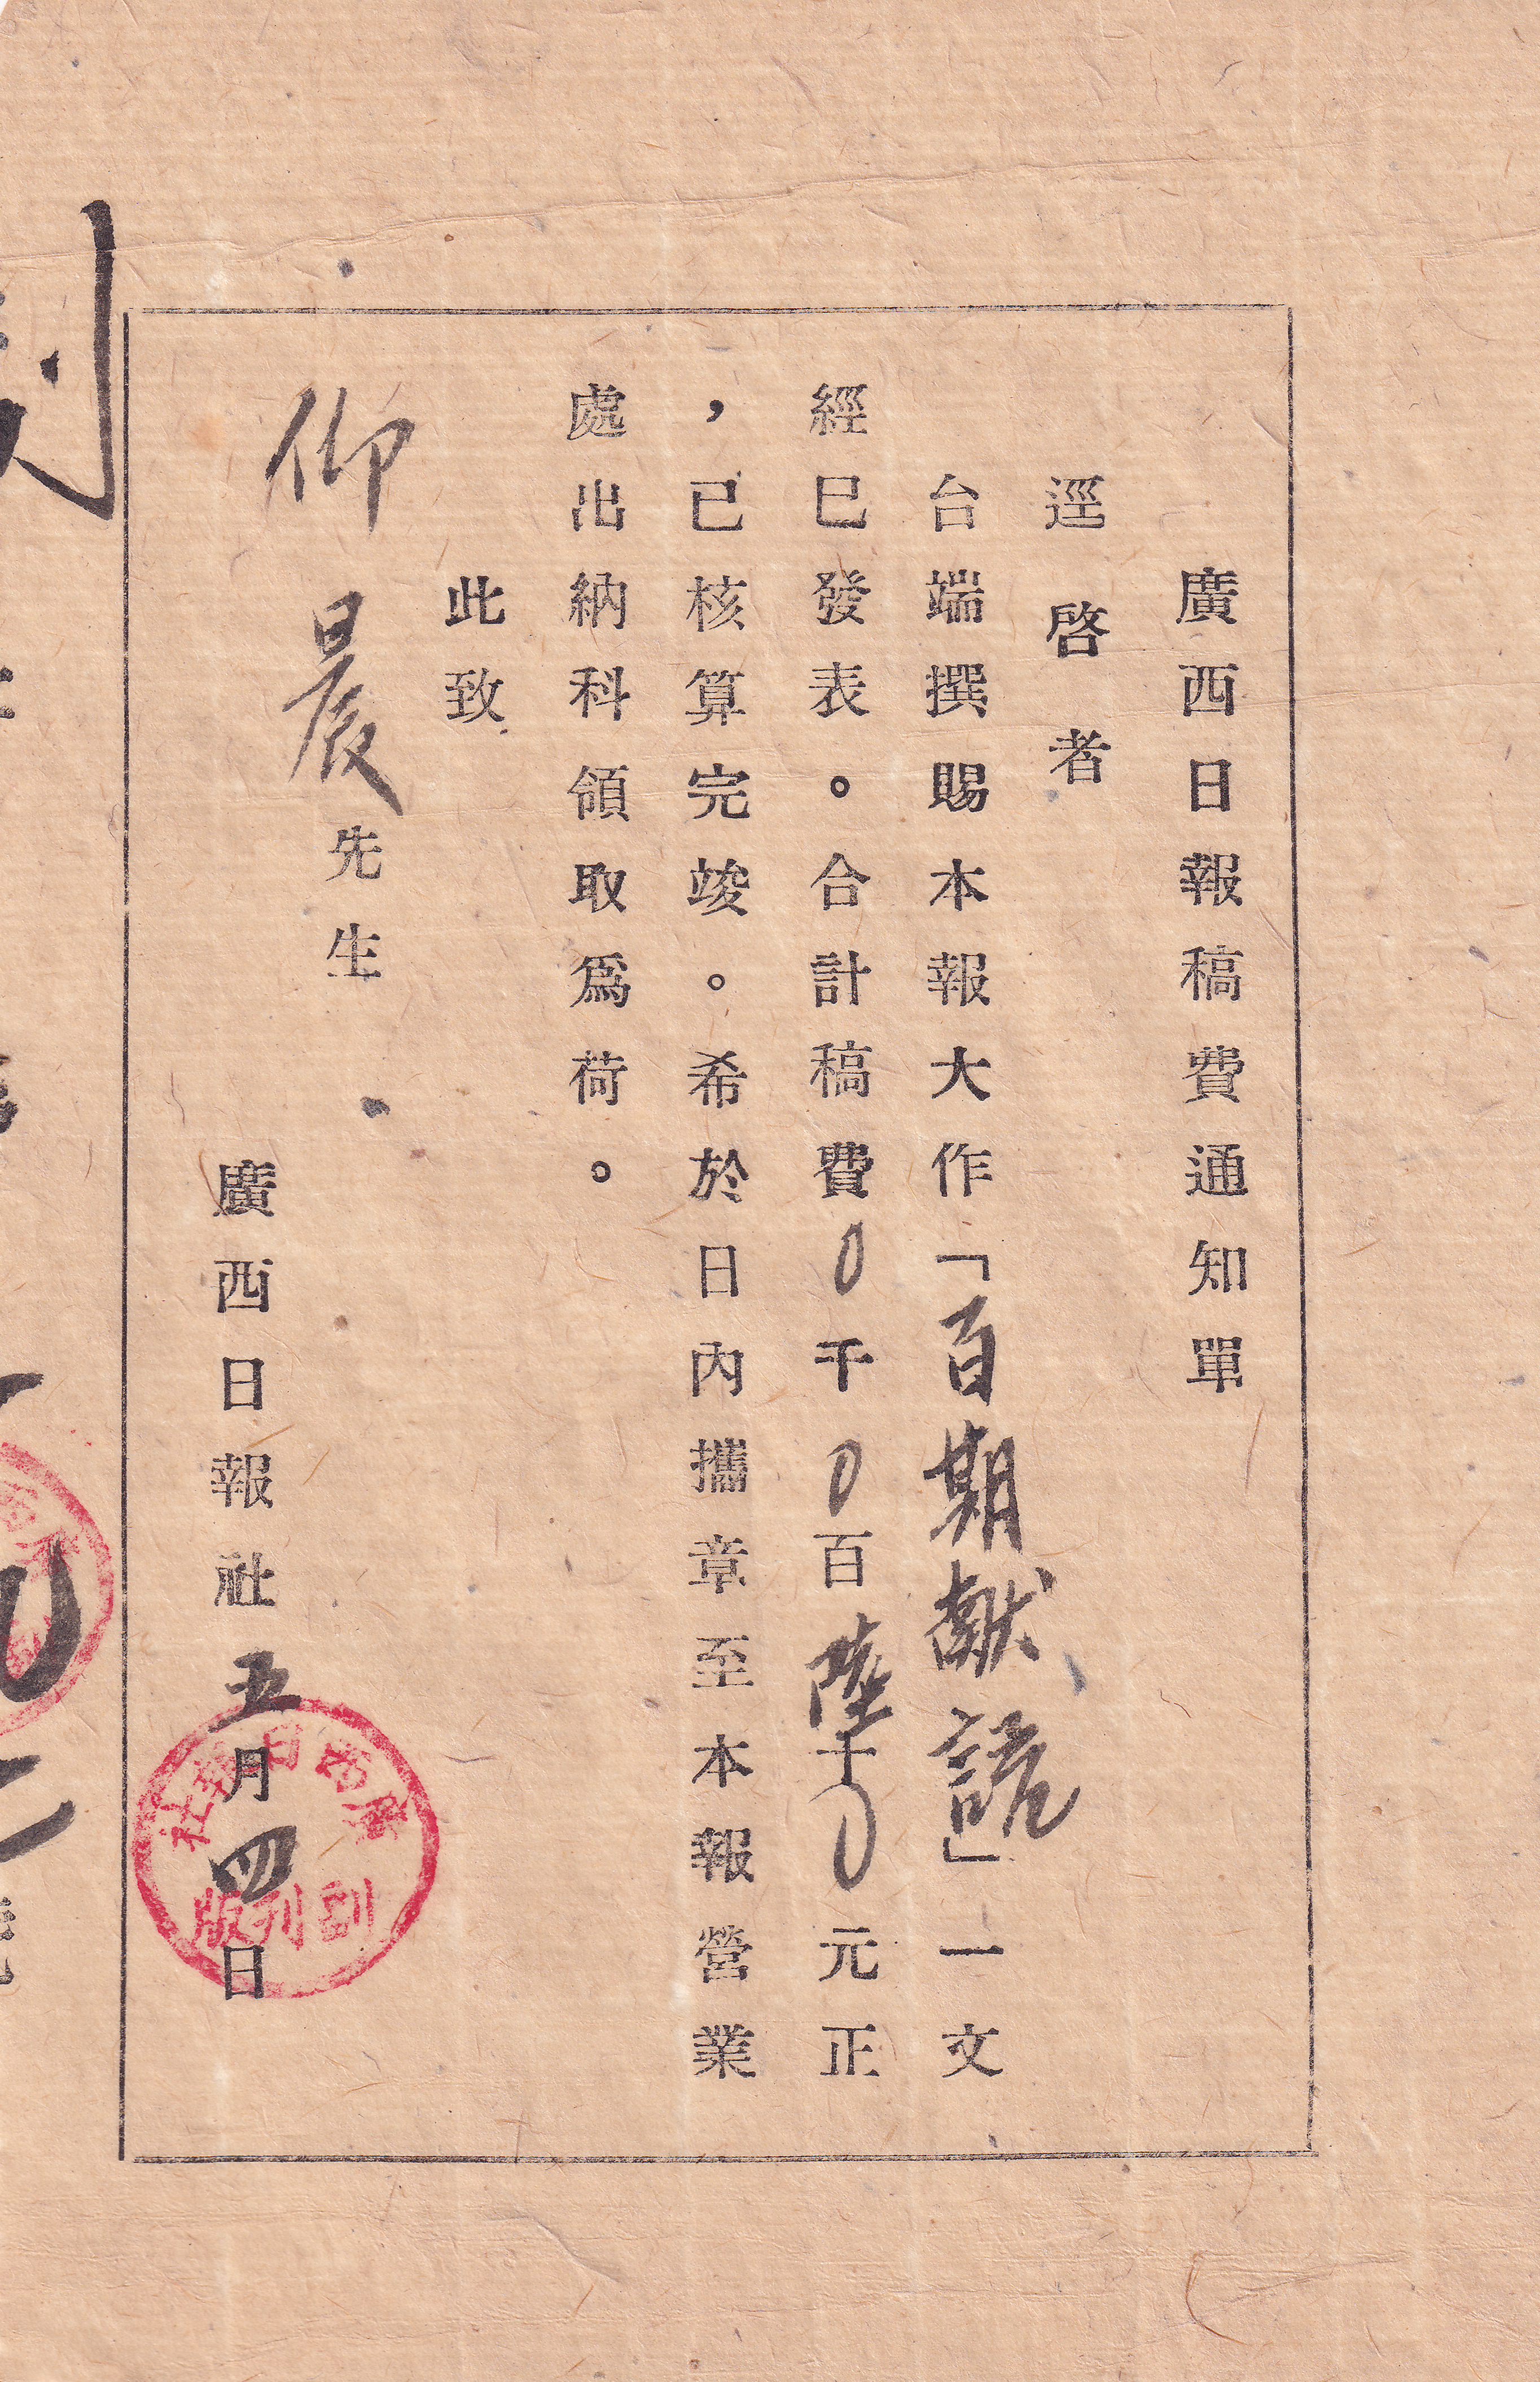 廣西日報稿費通知單
逕啓者
台端撰賜本報大作「百期獻詞」一文
經巳發表。合計稿費0千0百陸十0元正
，已核算完竣。希於日內攜章至本報營業
處出納科領取爲荷。
此致
仰晨先生
廣西日報社五月四日
廣西日報社
副刊版